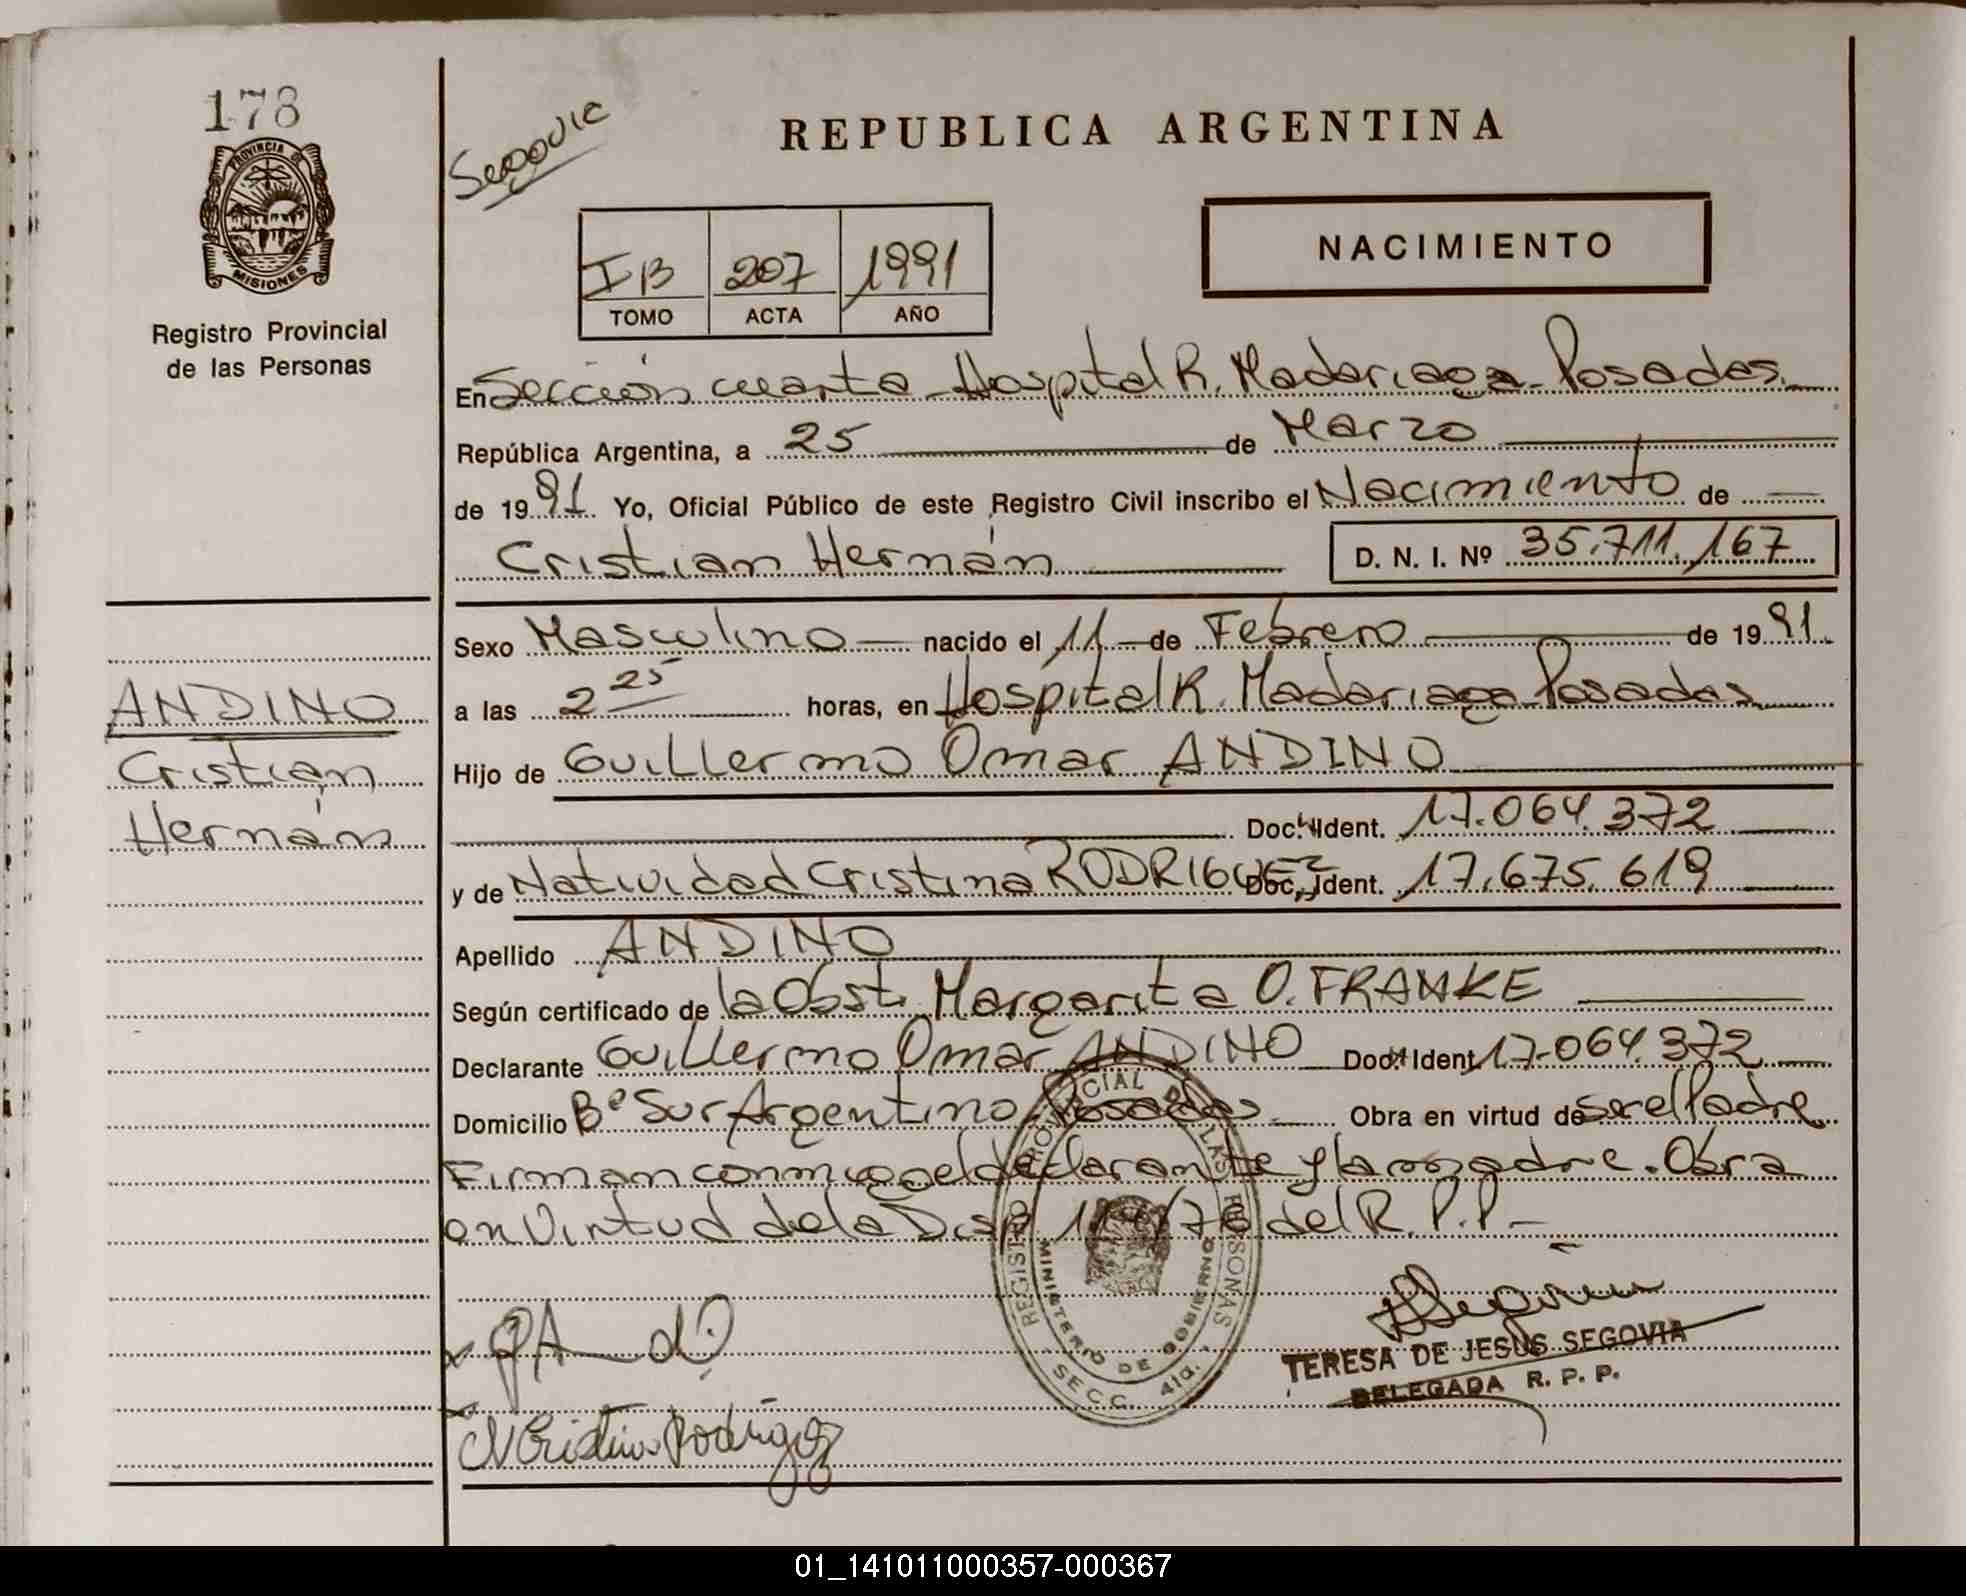 178
PROVINCIA DE
MISIONES
Registro Provincial
de las Personas
Segovia
REPUBLICA ARGENTINA
IB 207 1991
TOMO ACTA AÑO
NACIMIENTO
En Sección cuarta - Hospital R. Madariaga - Posadas
República Argentina, a 25 de Marzo
de 1991 Yo, Oficial Público de este Registro Civil inscribo el Nacimiento de
Cristian Hernán D. N. I. Nº 35.711.167
Sexo Masculino nacido el 11 de Febrero de 1991
a las 2 25 horas, en Hospital R. Madariaga - Posadas
Hijo de Guillermo Omar ANDINO
Doc. Ident. 17.064.372
y de Natividad Cristina RODRIGUEZ Doc. Ident. 17.675.619
Apellido ANDINO
Según certificado de la Obst. Margarita O. FRANKE
Declarante Guillermo Omar ANDINO Doc. Ident. 17.064.372
Domicilio Bº Sur Argentino - Posadas Obra en virtud de ser el Padre
Firman conmigo el declarante y la madre. Obra
en Virtud de la Disp. /78 del R.P.P.-
ANDINO
Cristian
Hernán
REGISTRO PROVINCIAL DE LAS PERSONAS
MINISTERIO DE GOBIERNO
SECC. 4ta.
N Cristina Rodriguez
TERESA DE JESUS SEGOVIA
DELEGADA R. P. P.
01_141011000357-000367